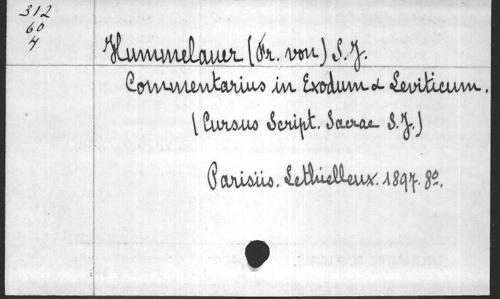 312
60
4
Hummelauer (Fr. von) S.J.
Commentarius in Exodum & Leviticum.
(Cursus Script. Sacrae S.J.)
Parisiis. Lethielleux. 1897. 8º.